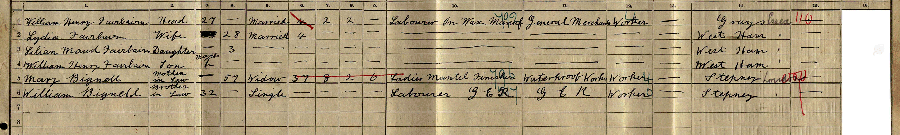 1 William Henry Fairbairn Head 27 — Married 2 2 — Labourer on Wax General Merchants Worker — Grays Essex
2 Lydia Fairbairn Wife 28 Married 4 West Ham
3 Lilian Maud Fairbairn Daughter 3 — West Ham
4 William Henry Fairbairn Son months West Ham
5 Mary Bignold Mother in Law — 57 Widow 37 8 2 6 Ladies Mantel Finisher Waterproof Works Worker — Stepney London
6 William Bignold Brother in Law 32 Single Labourer G E R G E R Worker Stepney
7
8